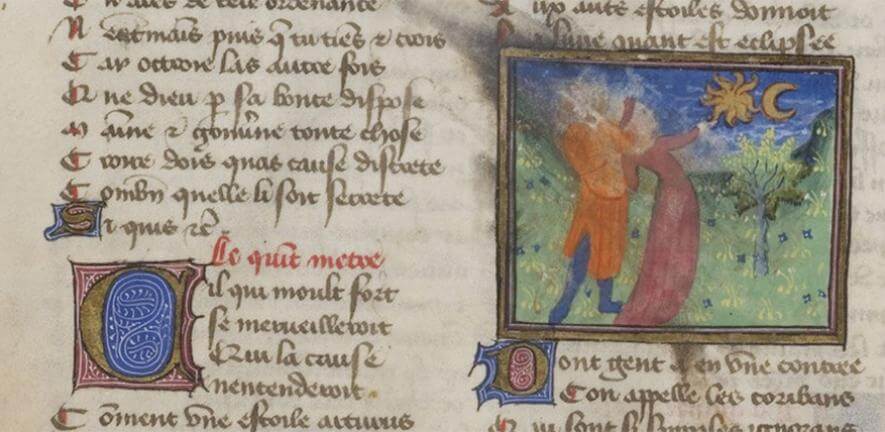 N entmais puis q̃ tu tiẽs ⁊ crois
C ar octroie las autre fois
Q ne dieu p̱ sa bonte dispose
m aine ⁊ gouũne toute chose
C roire dois quas cause discrete
C ombiẽ quelle li soit secrete
Si quis ⁊c̃
Le quĩt metre
Cil qui moult fort
se merueilleroit
Qui la cause
nentenderoit
C õment vne estoile arturus
aux autres estoilles donnoit
la lune quant est eclipsee
Dont gent a en vne contree
C on appelle les coribans